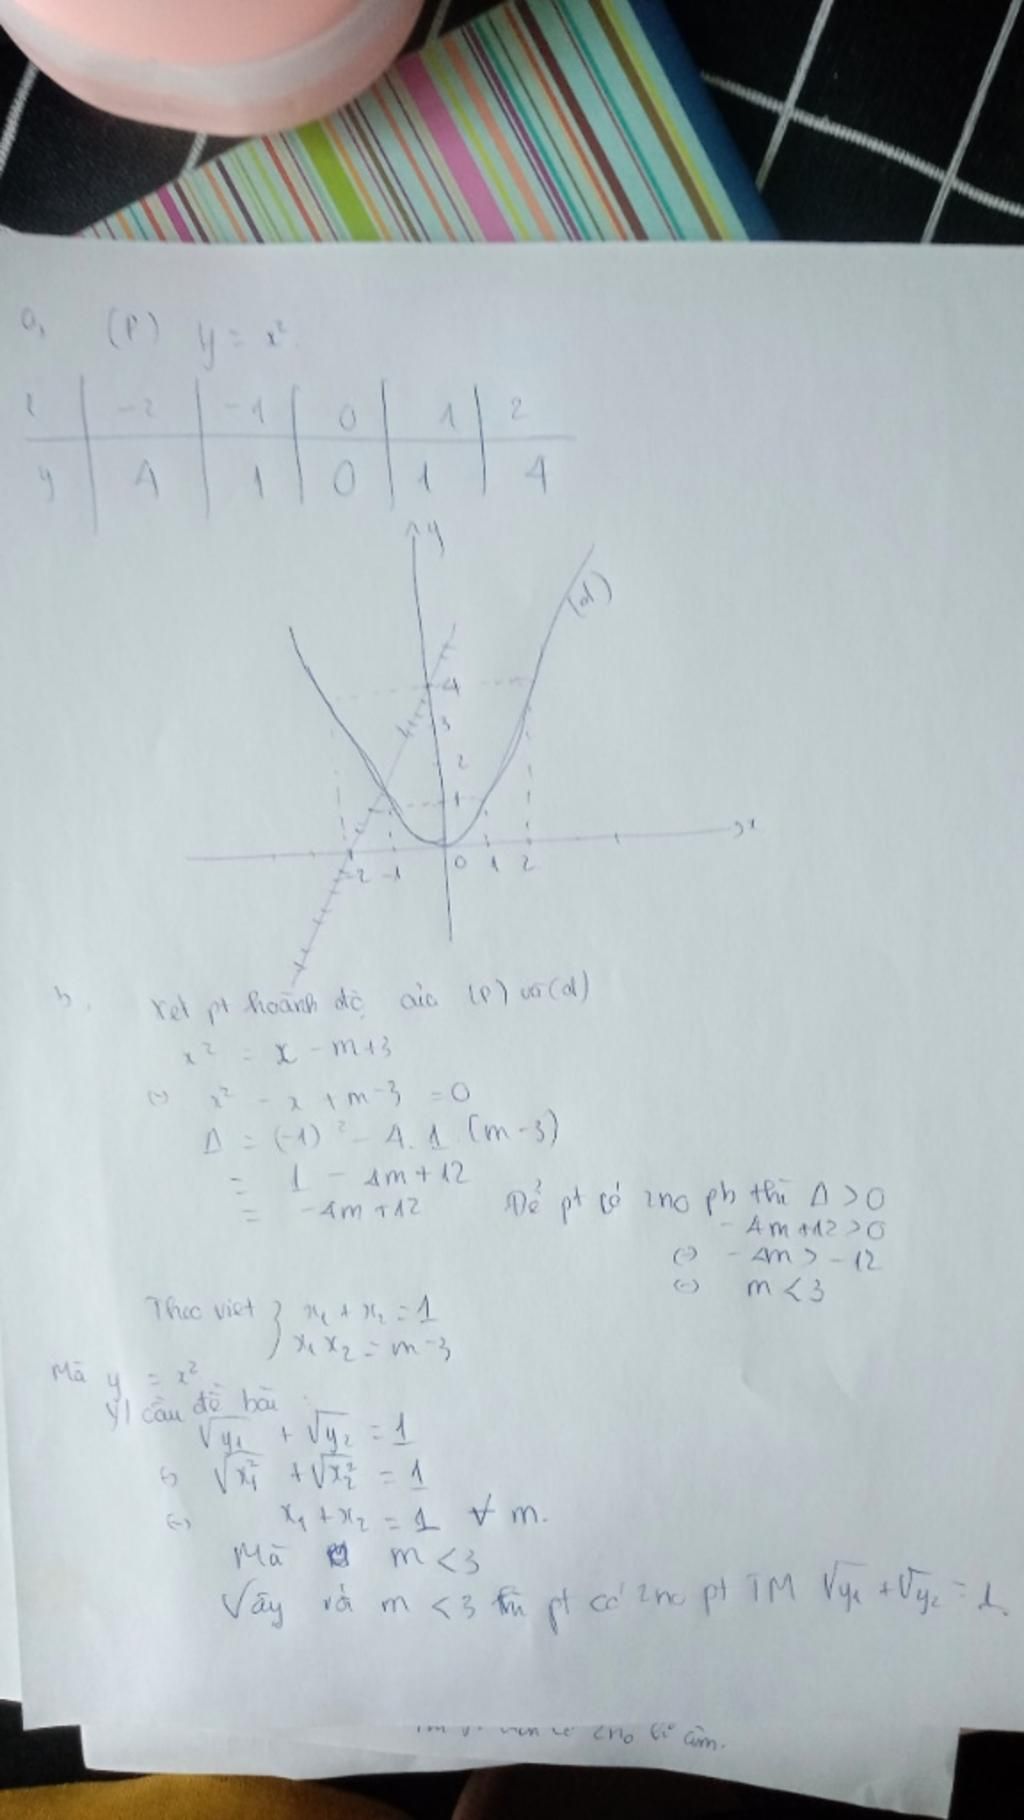 a, (P) y = x²
x | -2 | -1 | 0 | 1 | 2
y | 4 | 1 | 0 | 1 | 4
y
(d)
4
3
2
1
x
-2 -1 0 1 2
b, Xét pt hoành độ của (P) và (d)
x² = x - m+3
(-) x² - x + m-3 = 0
Δ = (-1)² - 4.1 (m-3)
= 1 - 4m+12
= -4m+12 Để pt có 2no pb thì Δ>0
- 4m+12>0
(-) - 4m > -12
(-) m<3
Theo viet } x₁ + x₂ = 1
x₁ x₂ = m-3
Mà y = x²
cầu đề bài
√y₁ + √y₂ = 1
(-) √x₁² + √x₂² = 1
(-) x₁ + x₂ = 1 ∀ m.
Mà m<3
Vậy m <3 thì pt có 2no pt TM √y₁ + √y₂ = 1